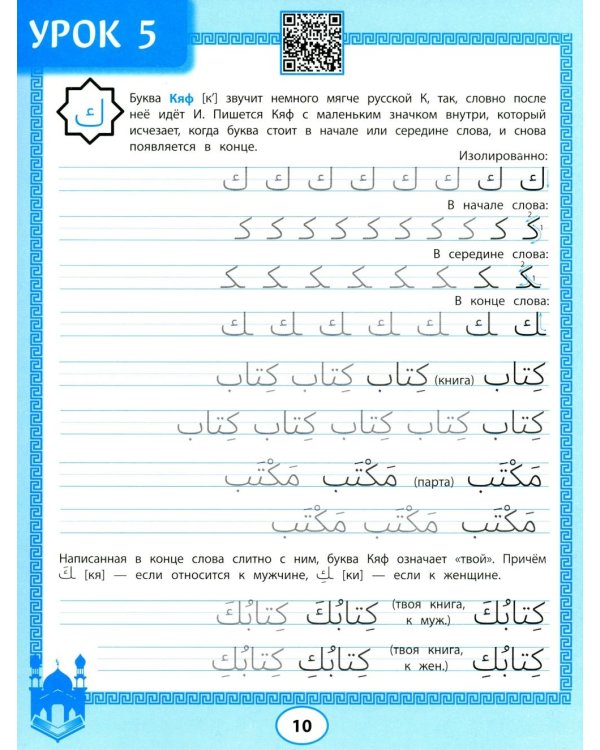 УРОК 5
ك
Буква Кяф [к’] звучит немного мягче русской К, так, словно после
неё идёт И. Пишется Кяф с маленьким значком внутри, который
исчезает, когда буква стоит в начале или середине слова, и снова
появляется в конце.
Изолированно:
ك ك ك ك ك ك ك ك
В начале слова:
2
كـ كـ كـ كـ كـ كـ كـ كـ كـ كـ
1
В середине слова:
2
ـكـ ـكـ ـكـ ـكـ ـكـ ـكـ ـكـ ـكـ
1
В конце слова:
ـك ـك ـك ـك ـك ـك ـك
كِتاب (книга) كِتاب كِتاب كِتاب
كِتاب كِتاب كِتاب كِتاب كِتاب
مَكْتَب (парта) مَكْتَب مَكْتَب
مَكْتَب مَكْتَب مَكْتَب
Написанная в конце слова слитно с ним, буква Кяф означает «твой». Причём
ـكَ [кя] — если относится к мужчине, ـكِ [ки] — если к женщине.
كِتابُكَ (твоя книга, к муж.) كِتابُكَ كِتابُكَ
كِتابُكِ (твоя книга, к жен.) كِتابُكِ كِتابُكِ
10